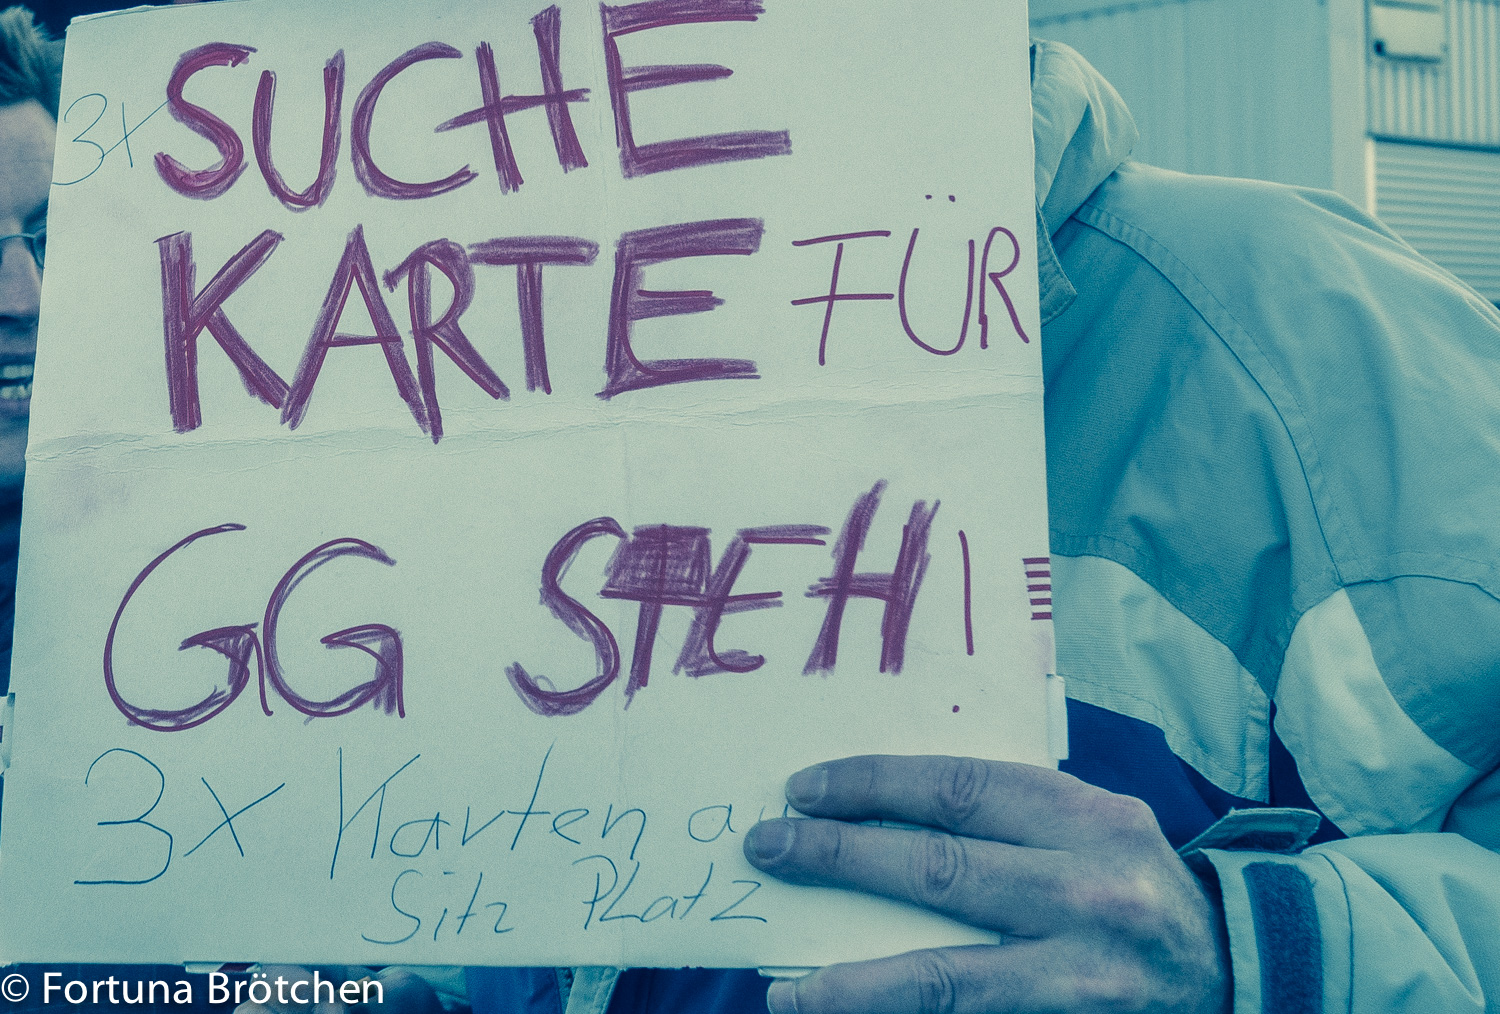 3x SUCHE
KARTE FÜR
GG STEH!
3x Karten
Sitz Platz
© Fortuna Brötchen